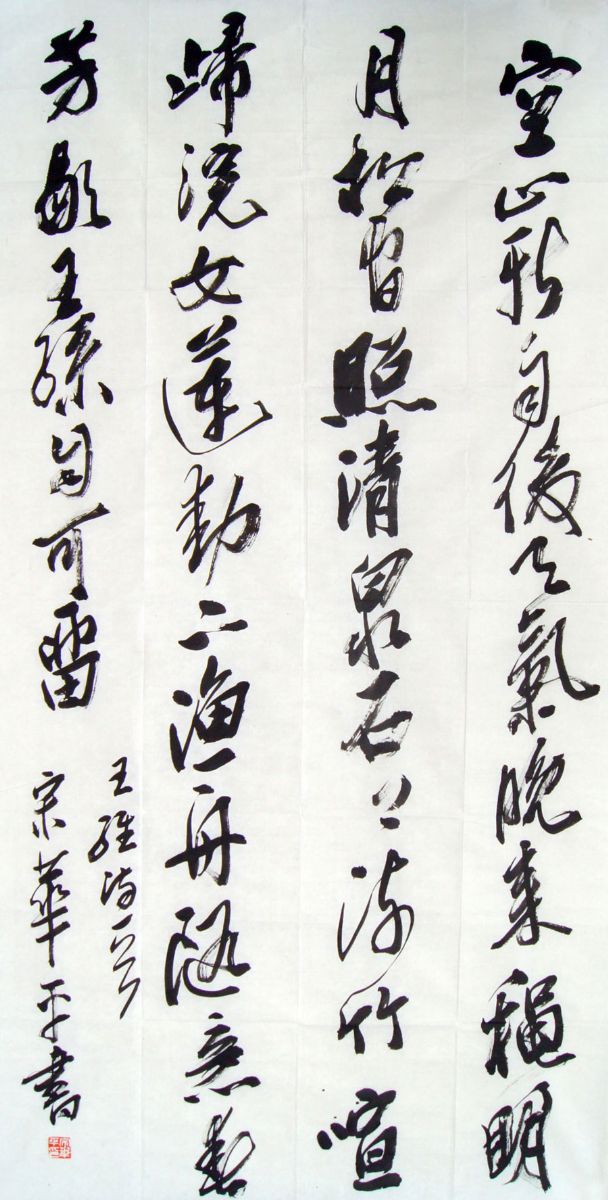 空山新雨後天氣晚來穐明
月松間照清泉石上流竹喧
歸浣女蓮動下漁舟隨意春
芳歇王孫自可畱
王維詩一首
宋華平書